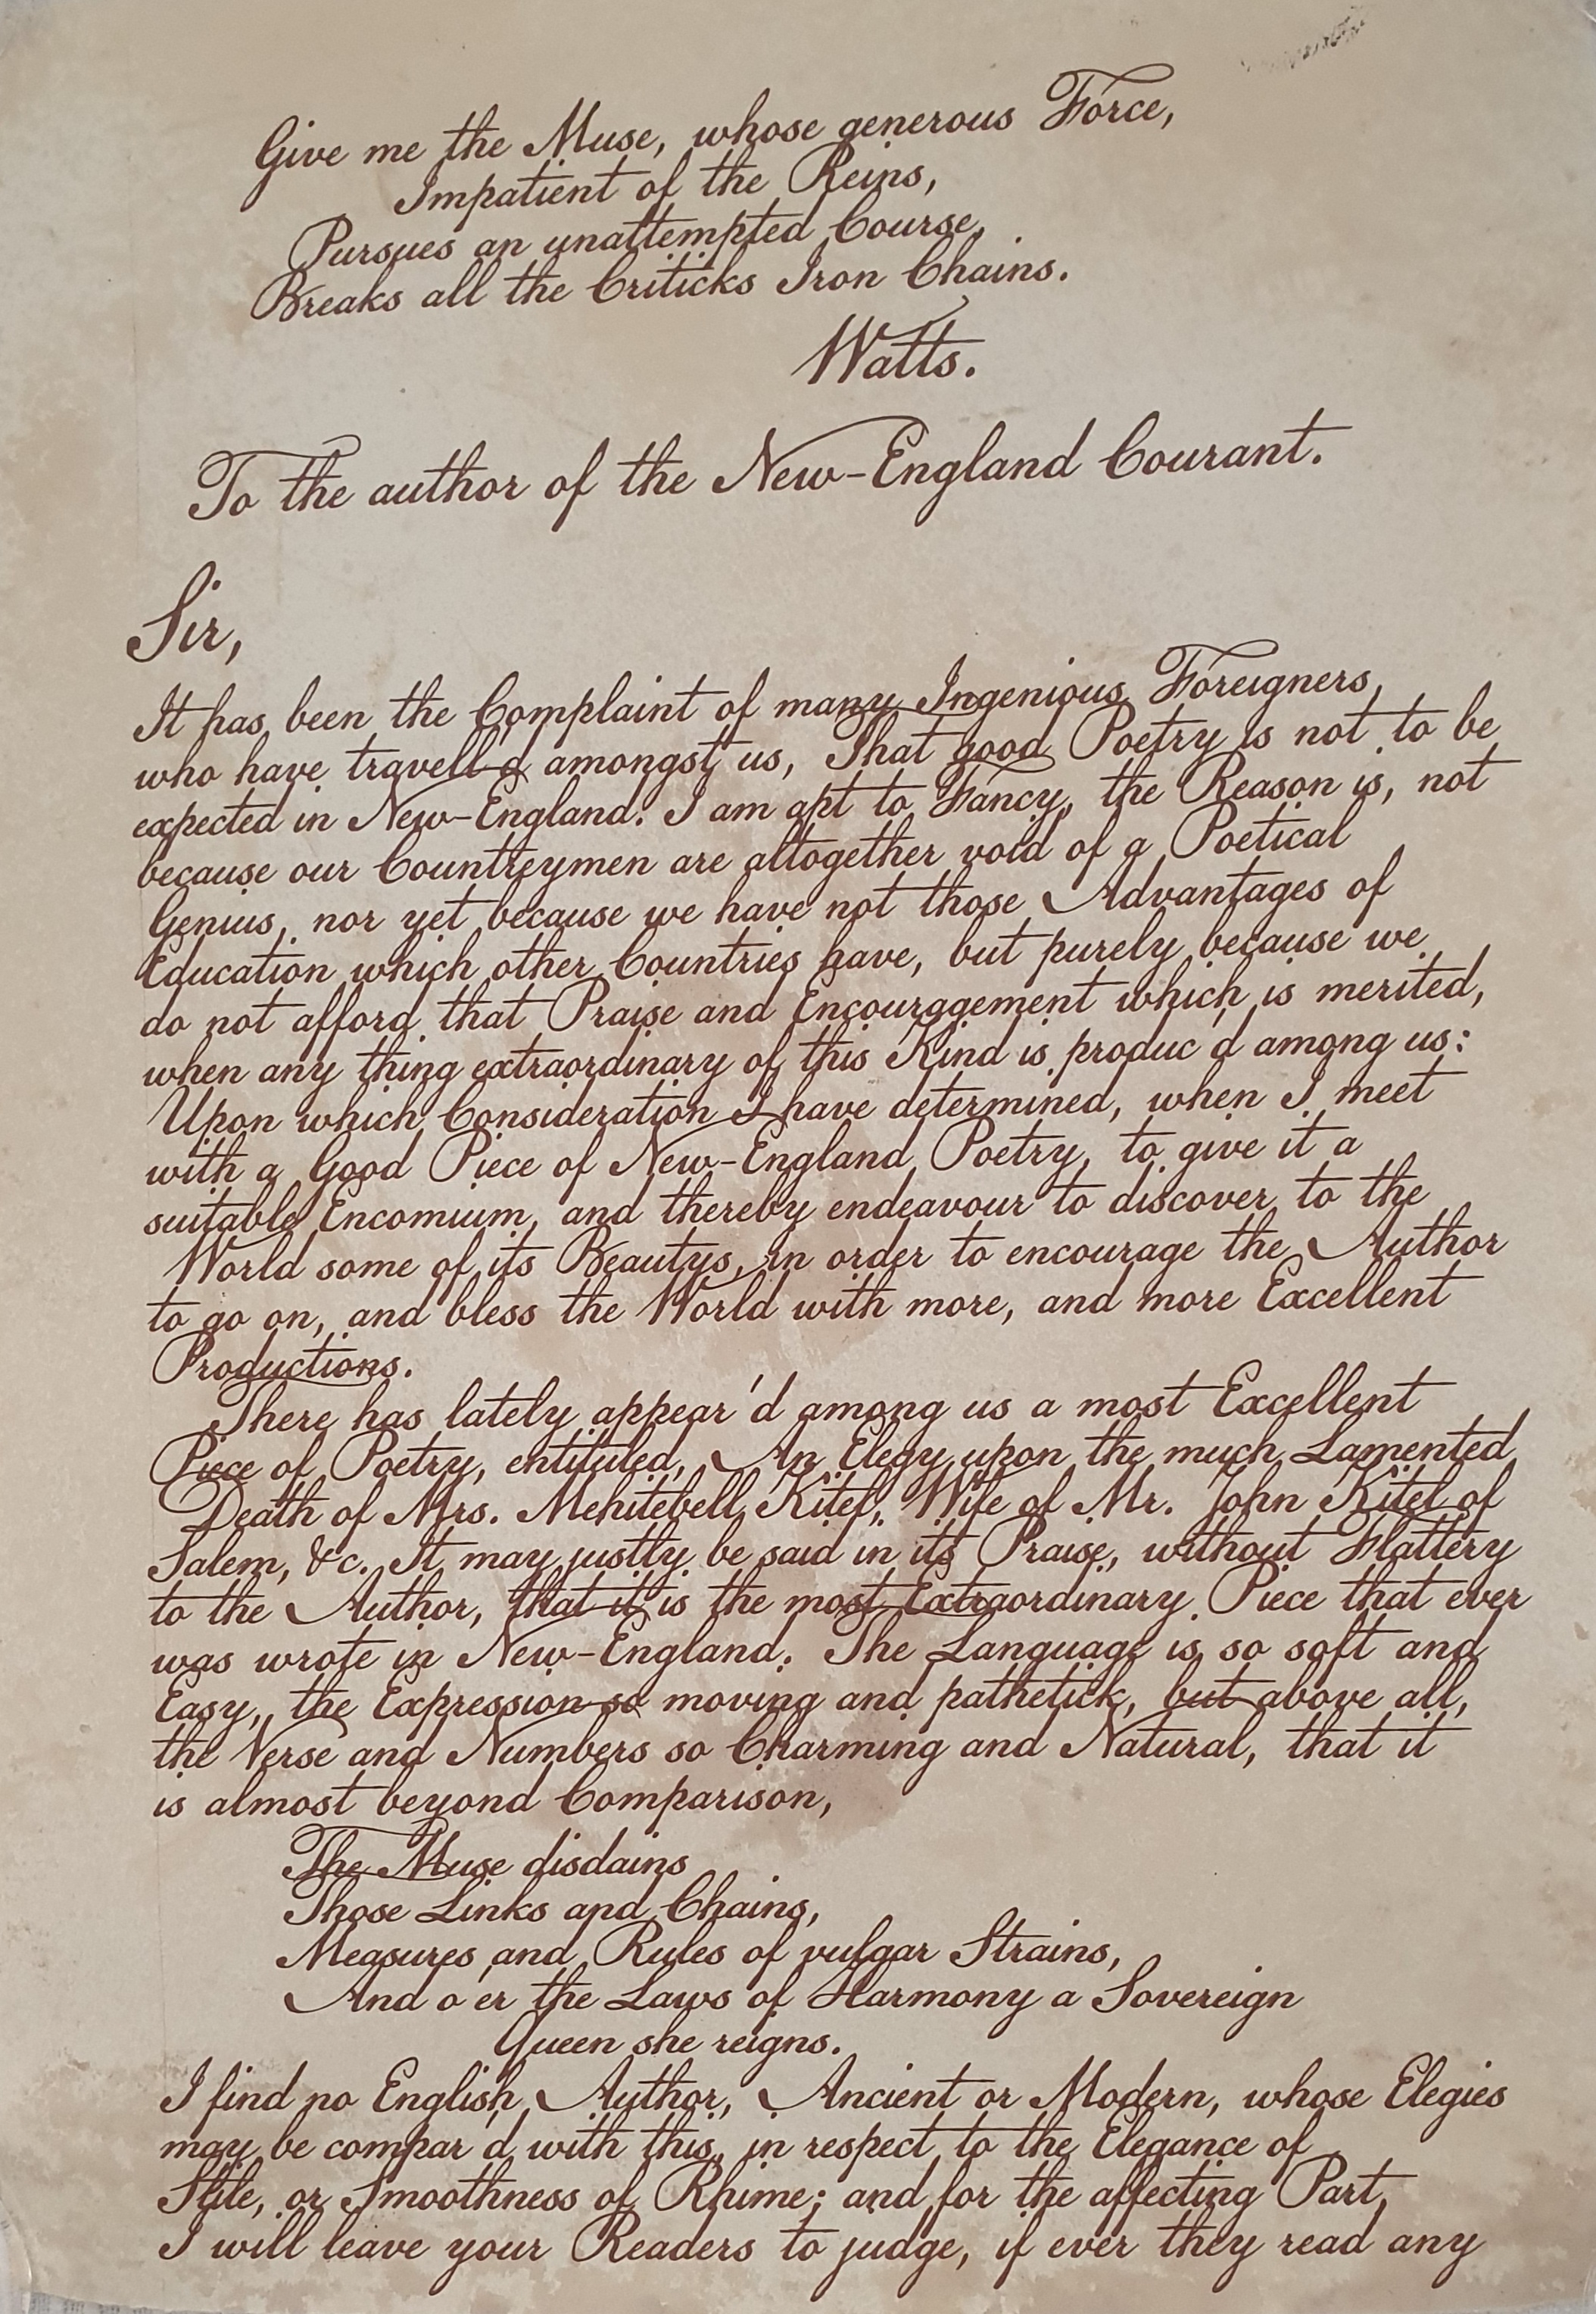 Give me the Muse, whose generous Force,
Impatient of the Reins,
Pursues an unattempted Course,
Breaks all the Criticks Iron Chains.
Watts.
To the author of the New-England Courant.
Sir,
It has been the Complaint of many Ingenious Foreigners,
who have travell'd amongst us, That good Poetry is not to be
expected in New-England. I am apt to Fancy, the Reason is, not
because our Countreymen are altogether void of a Poetical
Genius, nor yet because we have not those Advantages of
Education which other Countries have, but purely because we
do not afford that Praise and Encouragement which is merited,
when any thing extraordinary of this Kind is produc'd among us:
Upon which Consideration I have determined, when I meet
with a Good Piece of New-England Poetry, to give it a
suitable Encomium, and thereby endeavour to discover to the
World some of its Beautys, in order to encourage the Author
to go on, and bless the World with more, and more Excellent
Productions.
There has lately appear'd among us a most Excellent
Piece of Poetry, entituled, An Elegy upon the much Lamented
Death of Mrs. Mehitebell Kitel, Wife of Mr. John Kitel of
Salem, &c. It may justly be said in its Praise, without Flattery
to the Author, that it is the most Extraordinary Piece that ever
was wrote in New-England. The Language is so soft and
Easy, the Expression so moving and pathetick, but above all,
the Verse and Numbers so Charming and Natural, that it
is almost beyond Comparison,
The Muse disdains
Those Links and Chains,
Measures and Rules of vulgar Strains,
And o'er the Laws of Harmony a Sovereign
Queen she reigns.
I find no English Author, Ancient or Modern, whose Elegies
may be compar'd with this, in respect to the Elegance of
Stile, or Smoothness of Rhime; and for the affecting Part,
I will leave your Readers to judge, if ever they read any